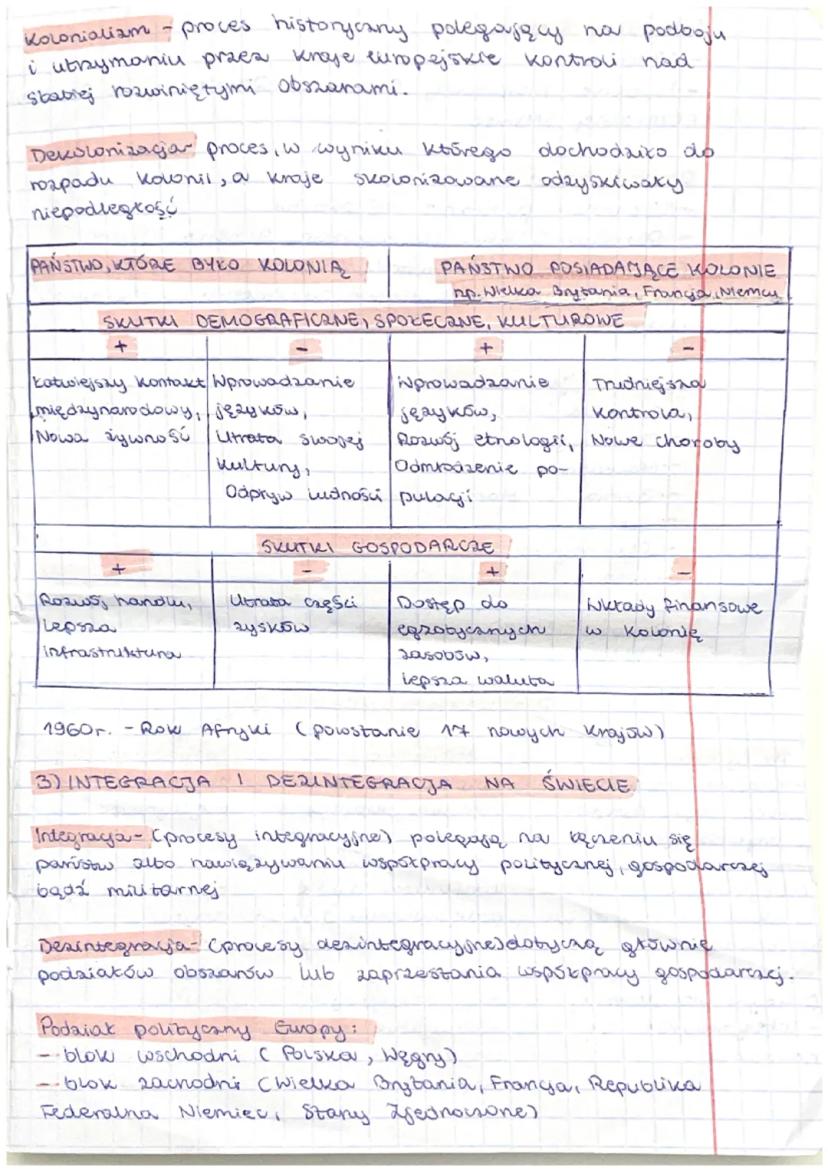 Kolonializm - proces historyczny polegający na podboju
i utrzymaniu przez kraje europejskie kontroli nad
słabiej rozwiniętymi obszarami.
Dekolonizacja - proces, w wyniku którego dochodziło do
rozpadu kolonii, a kraje skolonizowane odzyskiwały
niepodległość
PAŃSTWO, KTÓRE BYŁO KOLONIĄ
PAŃSTWO POSIADAJĄCE KOLONIE
np. Wielka Brytania, Francja, Niemcy
SKUTKI DEMOGRAFICZNE, SPOŁECZNE, KULTUROWE
+ - + -
Łatwiejszy kontakt
międzynarodowy,
Nowa żywność
Wprowadzanie
języków,
Utrata swojej
kultury,
Odpływ ludności
Wprowadzanie
języków,
Rozwój etnologii,
Odmłodzenie po-
pulacji
Trudniejsza
kontrola,
Nowe choroby
SKUTKI GOSPODARCZE
+ - + -
Rozwój handlu,
Lepsza
infrastruktura
Utrata części
zysków
Dostęp do
egzotycznych
zasobów,
lepsza waluta
Wkłady finansowe
w kolonię
1960r. - Rok Afryki (powstanie 17 nowych krajów)
3) INTEGRACJA I DEZINTEGRACJA NA ŚWIECIE
Integracja - (procesy integracyjne) polegają na łączeniu się
państw albo nawiązywaniu współpracy politycznej, gospodarczej
bądź militarnej
Dezintegracja - (procesy dezintegracyjne) dotyczą głównie
podziałów obszarów lub zaprzestania współpracy gospodarczej.
Podział polityczny Europy:
- blok wschodni (Polska, Węgry)
- blok zachodni (Wielka Brytania, Francja, Republika
Federalna Niemiec, Stany Zjednoczone)